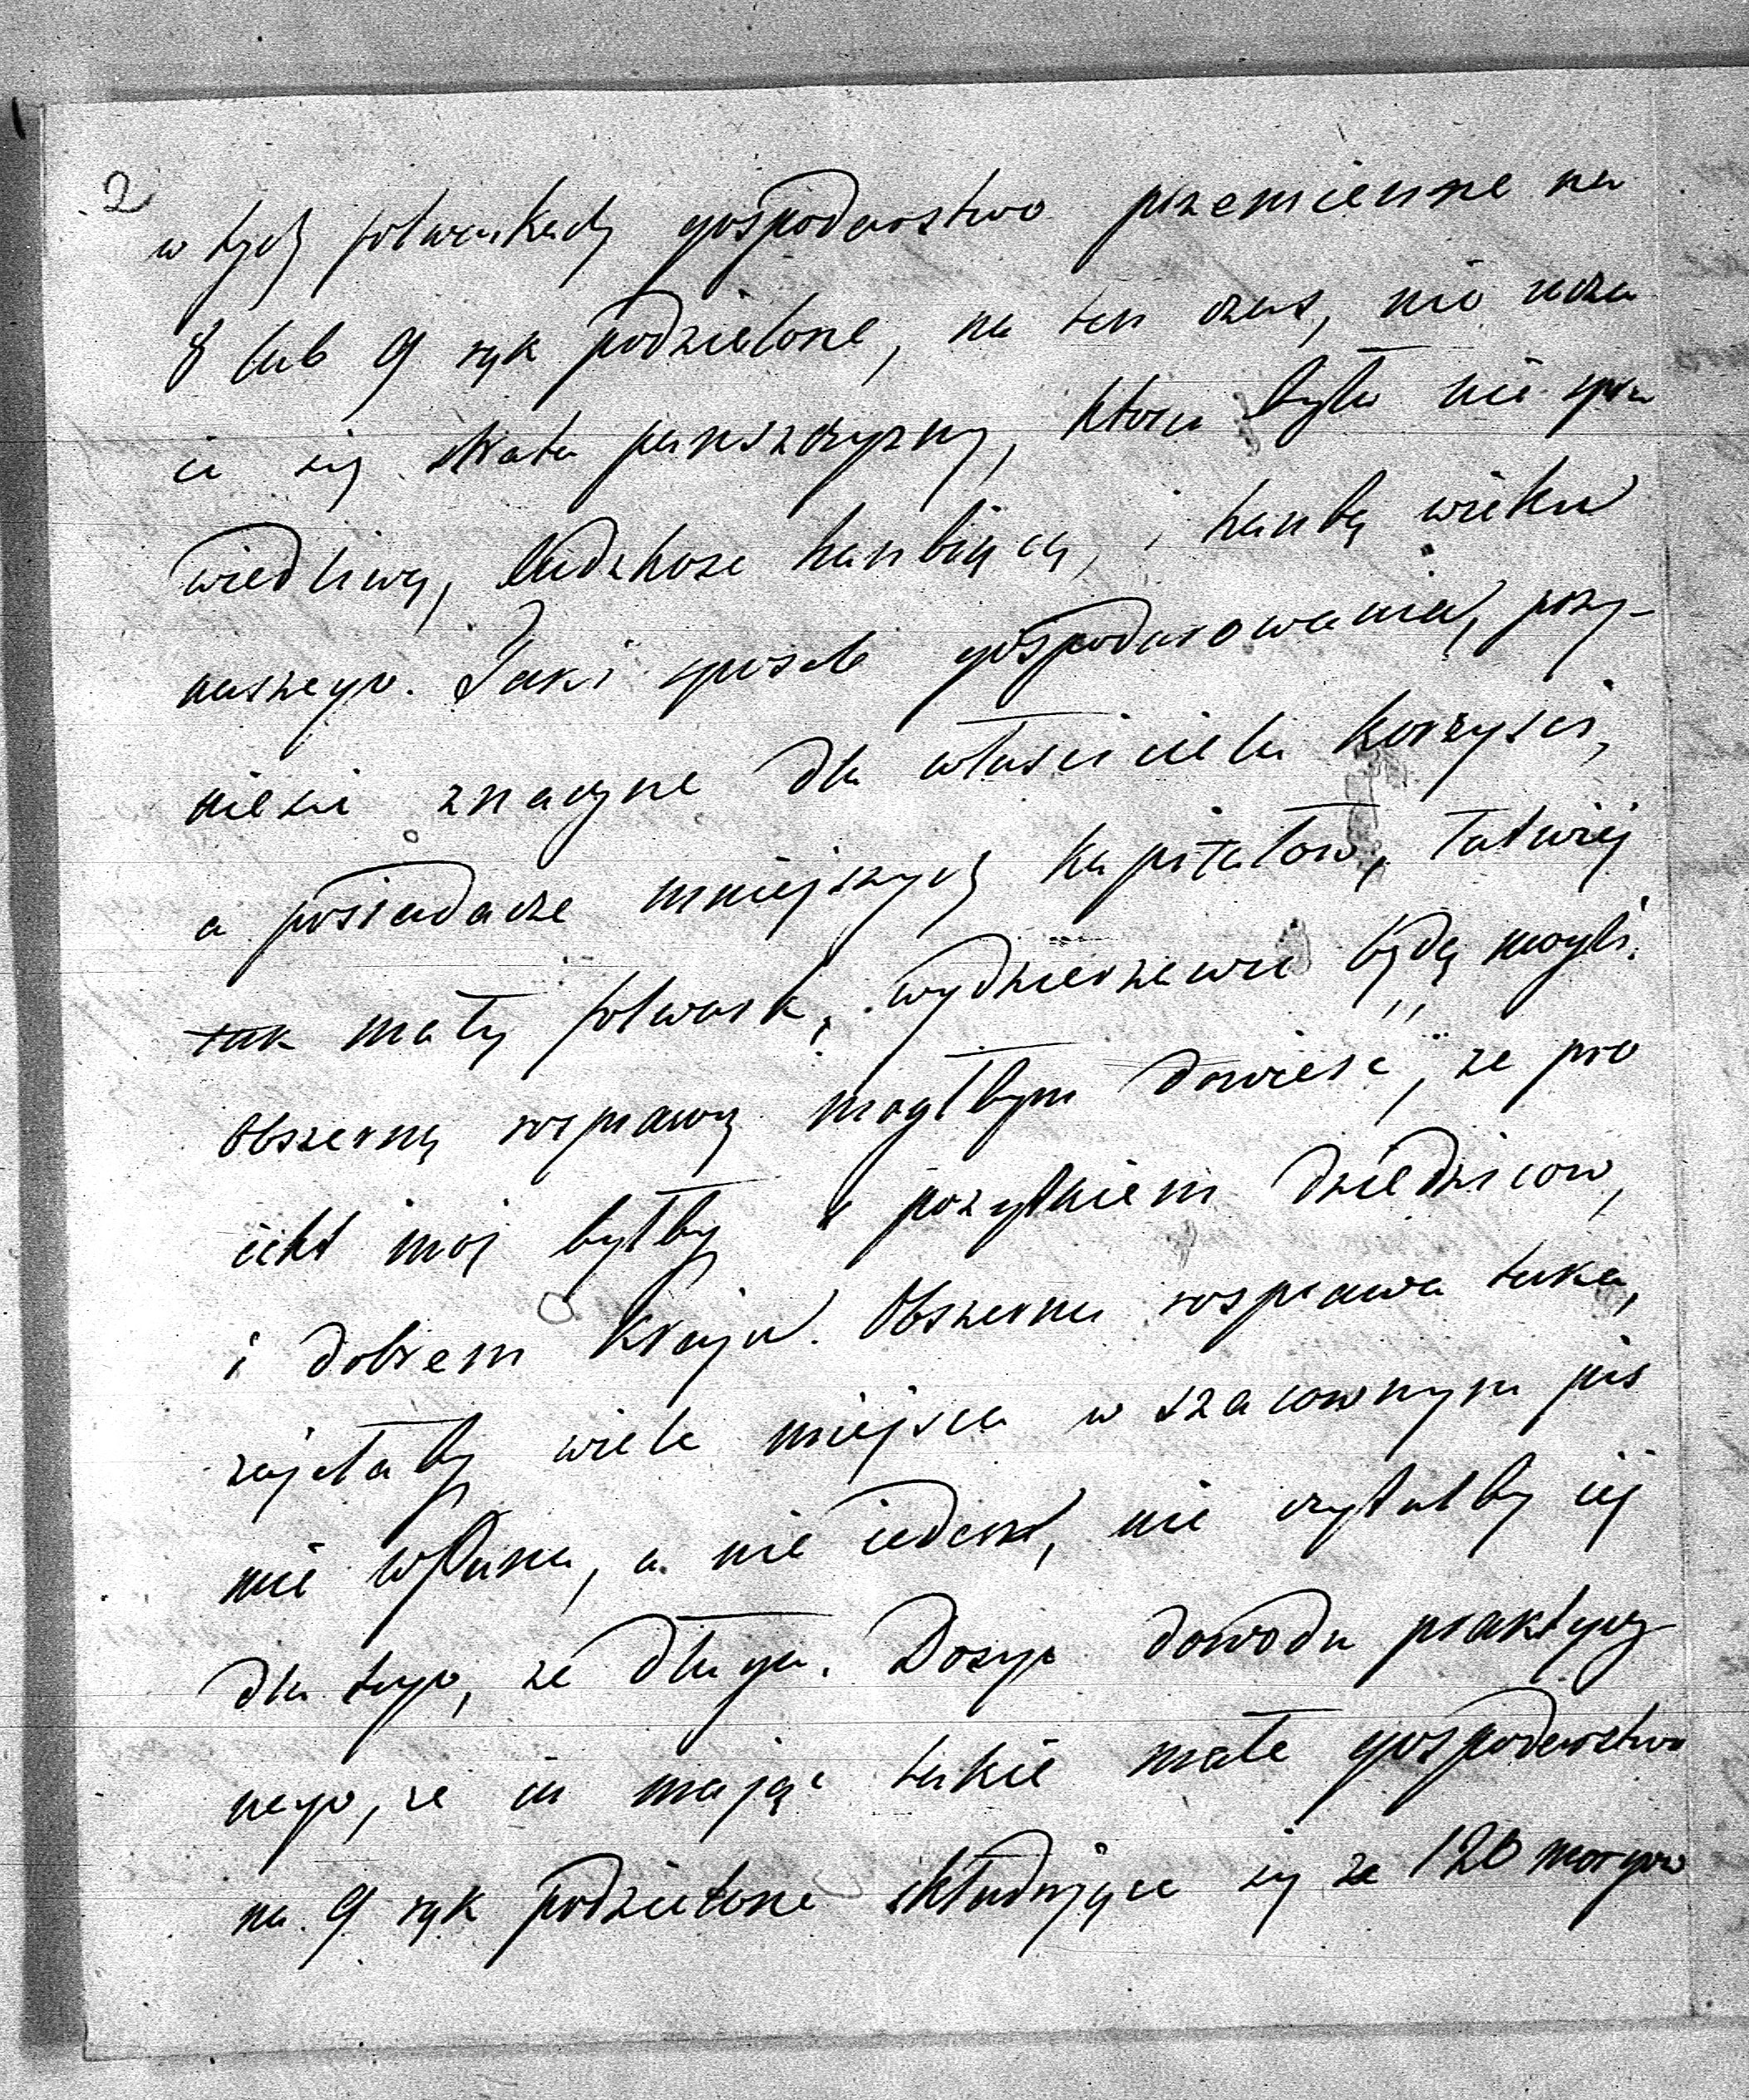 2
w tych folwarkach gospodarstwo przemienne na
8 lub 9 ręk podzielone, na ten czas, nie uczu
ie się strata panszczyzny, ktora była nie spra
wiedliwą, ludzkosc hanbiącą, i hanbą wieku
naszego. Taki sposob gospodarowania, przy-
niesie znaczne dla własciciela korzysci,
a posiadacze mniejszych kapitałow, łatwiej
tak mały folwark, wydzierzawic będą mogli.
Obszerną rosprawą mogłbym dowiesc, ze pro
iekt moj byłby z pozytkiem dziedzicow,
i dobrem kraju. Obszerna rosprawa taka,
zajełaby wiele miejsca w szacownym pis
mie wPana, a nie ieden, nie czytałby iej
dla tego, ze długa. Dosyc dowodu praktycz
nego, ze ia mając takie małe gospodarstwo
na 9 ręk podzielone składające się ze 120 morgow